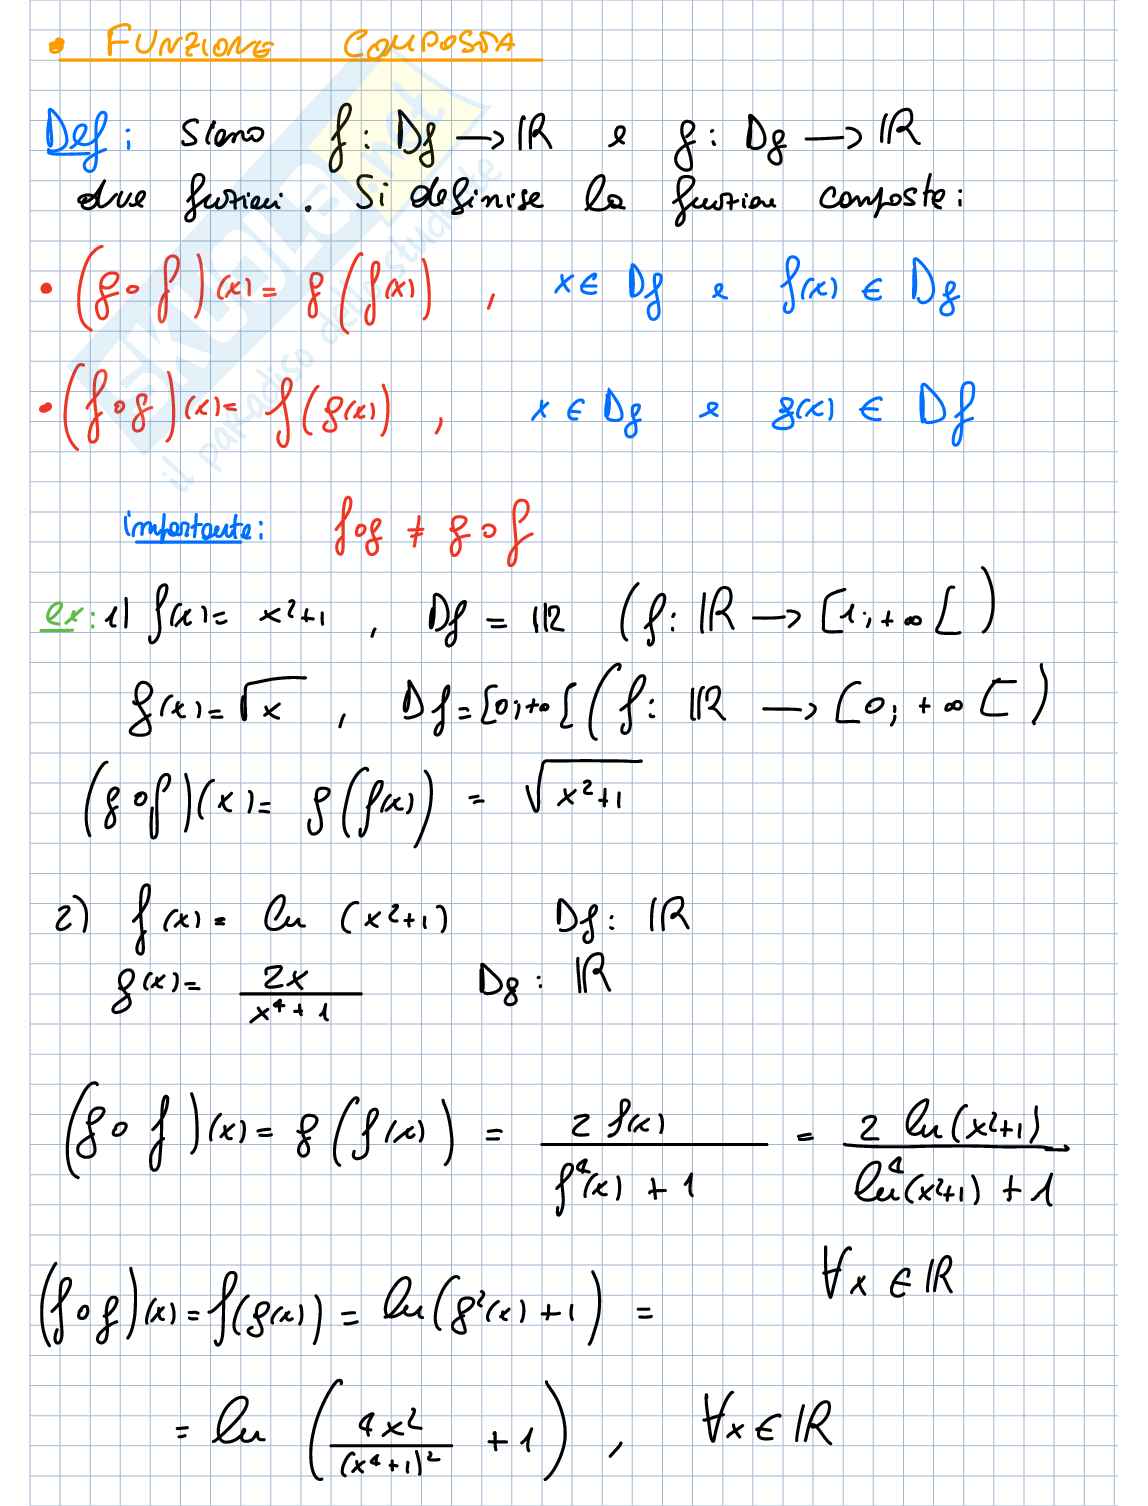 • FUNZIONE COMPOSTA
Def: Siano f: Df → ℝ e g: Dg → ℝ
due funzioni. Si definisce la funzione composte:
• (g∘f)(x) = g(f(x)), x ∈ Df e f(x) ∈ Dg
• (f∘g)(x) = f(g(x)), x ∈ Dg e g(x) ∈ Df
importante: f∘g ≠ g∘f
ex: 1) f(x) = x²+1, Df = ℝ (f: ℝ → [1; +∞[)
g(x) = √x, Df = [0; +∞[ (f: ℝ → [0; +∞[)
(g∘f)(x) = g(f(x)) = √(x²+1)
2) f(x) = ln (x²+1) Df: ℝ
g(x) = 2x/(x⁴+1) Dg: ℝ
(g∘f)(x) = g(f(x)) = 2 f(x)/(f⁴(x) + 1) = 2 ln(x²+1)/(ln⁴(x²+1) + 1)
∀x ∈ ℝ
(f∘g)(x) = f(g(x)) = ln(g²(x) + 1) =
= ln (4x²/(x⁴+1)² + 1), ∀x ∈ ℝ
SKUOLA.net
il paradiso dello studente